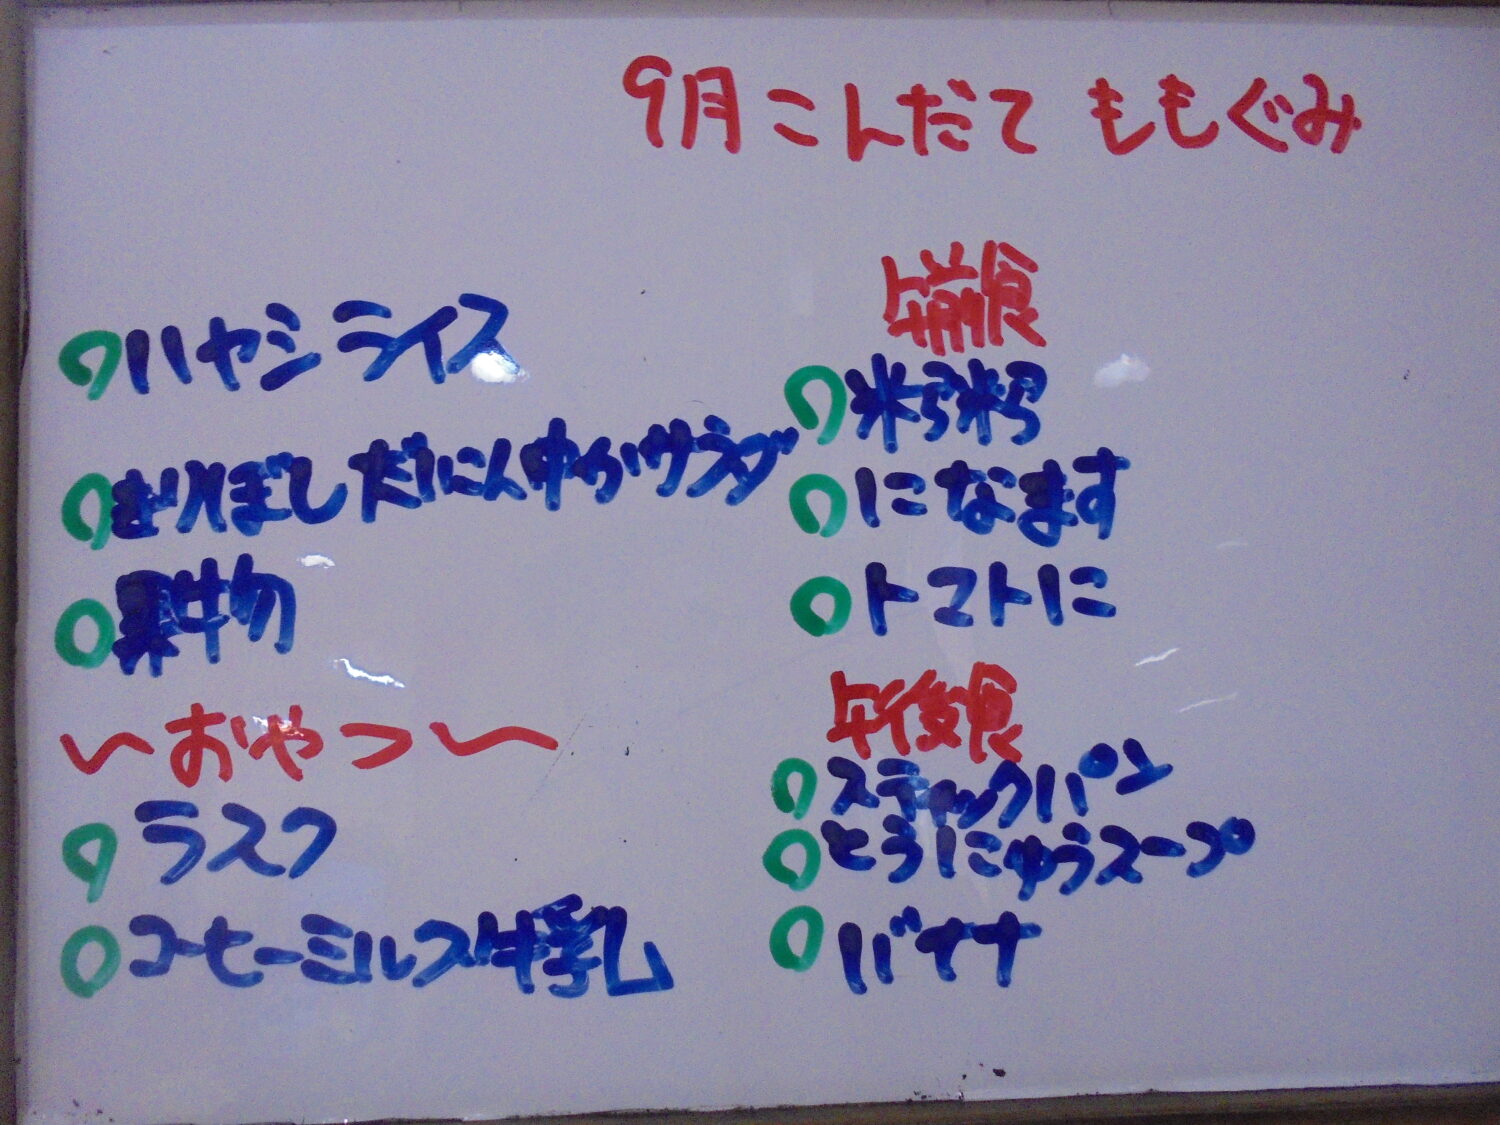 9月こんだて ももぐみ
ハヤシライス
きりぼしだいこん中かサラダ
果物
〜おやつ〜
ラスク
コーヒーミルク牛乳
午前食
粥
になます
トマトに
午後食
スティックパン
とうにゅうスープ
バナナ